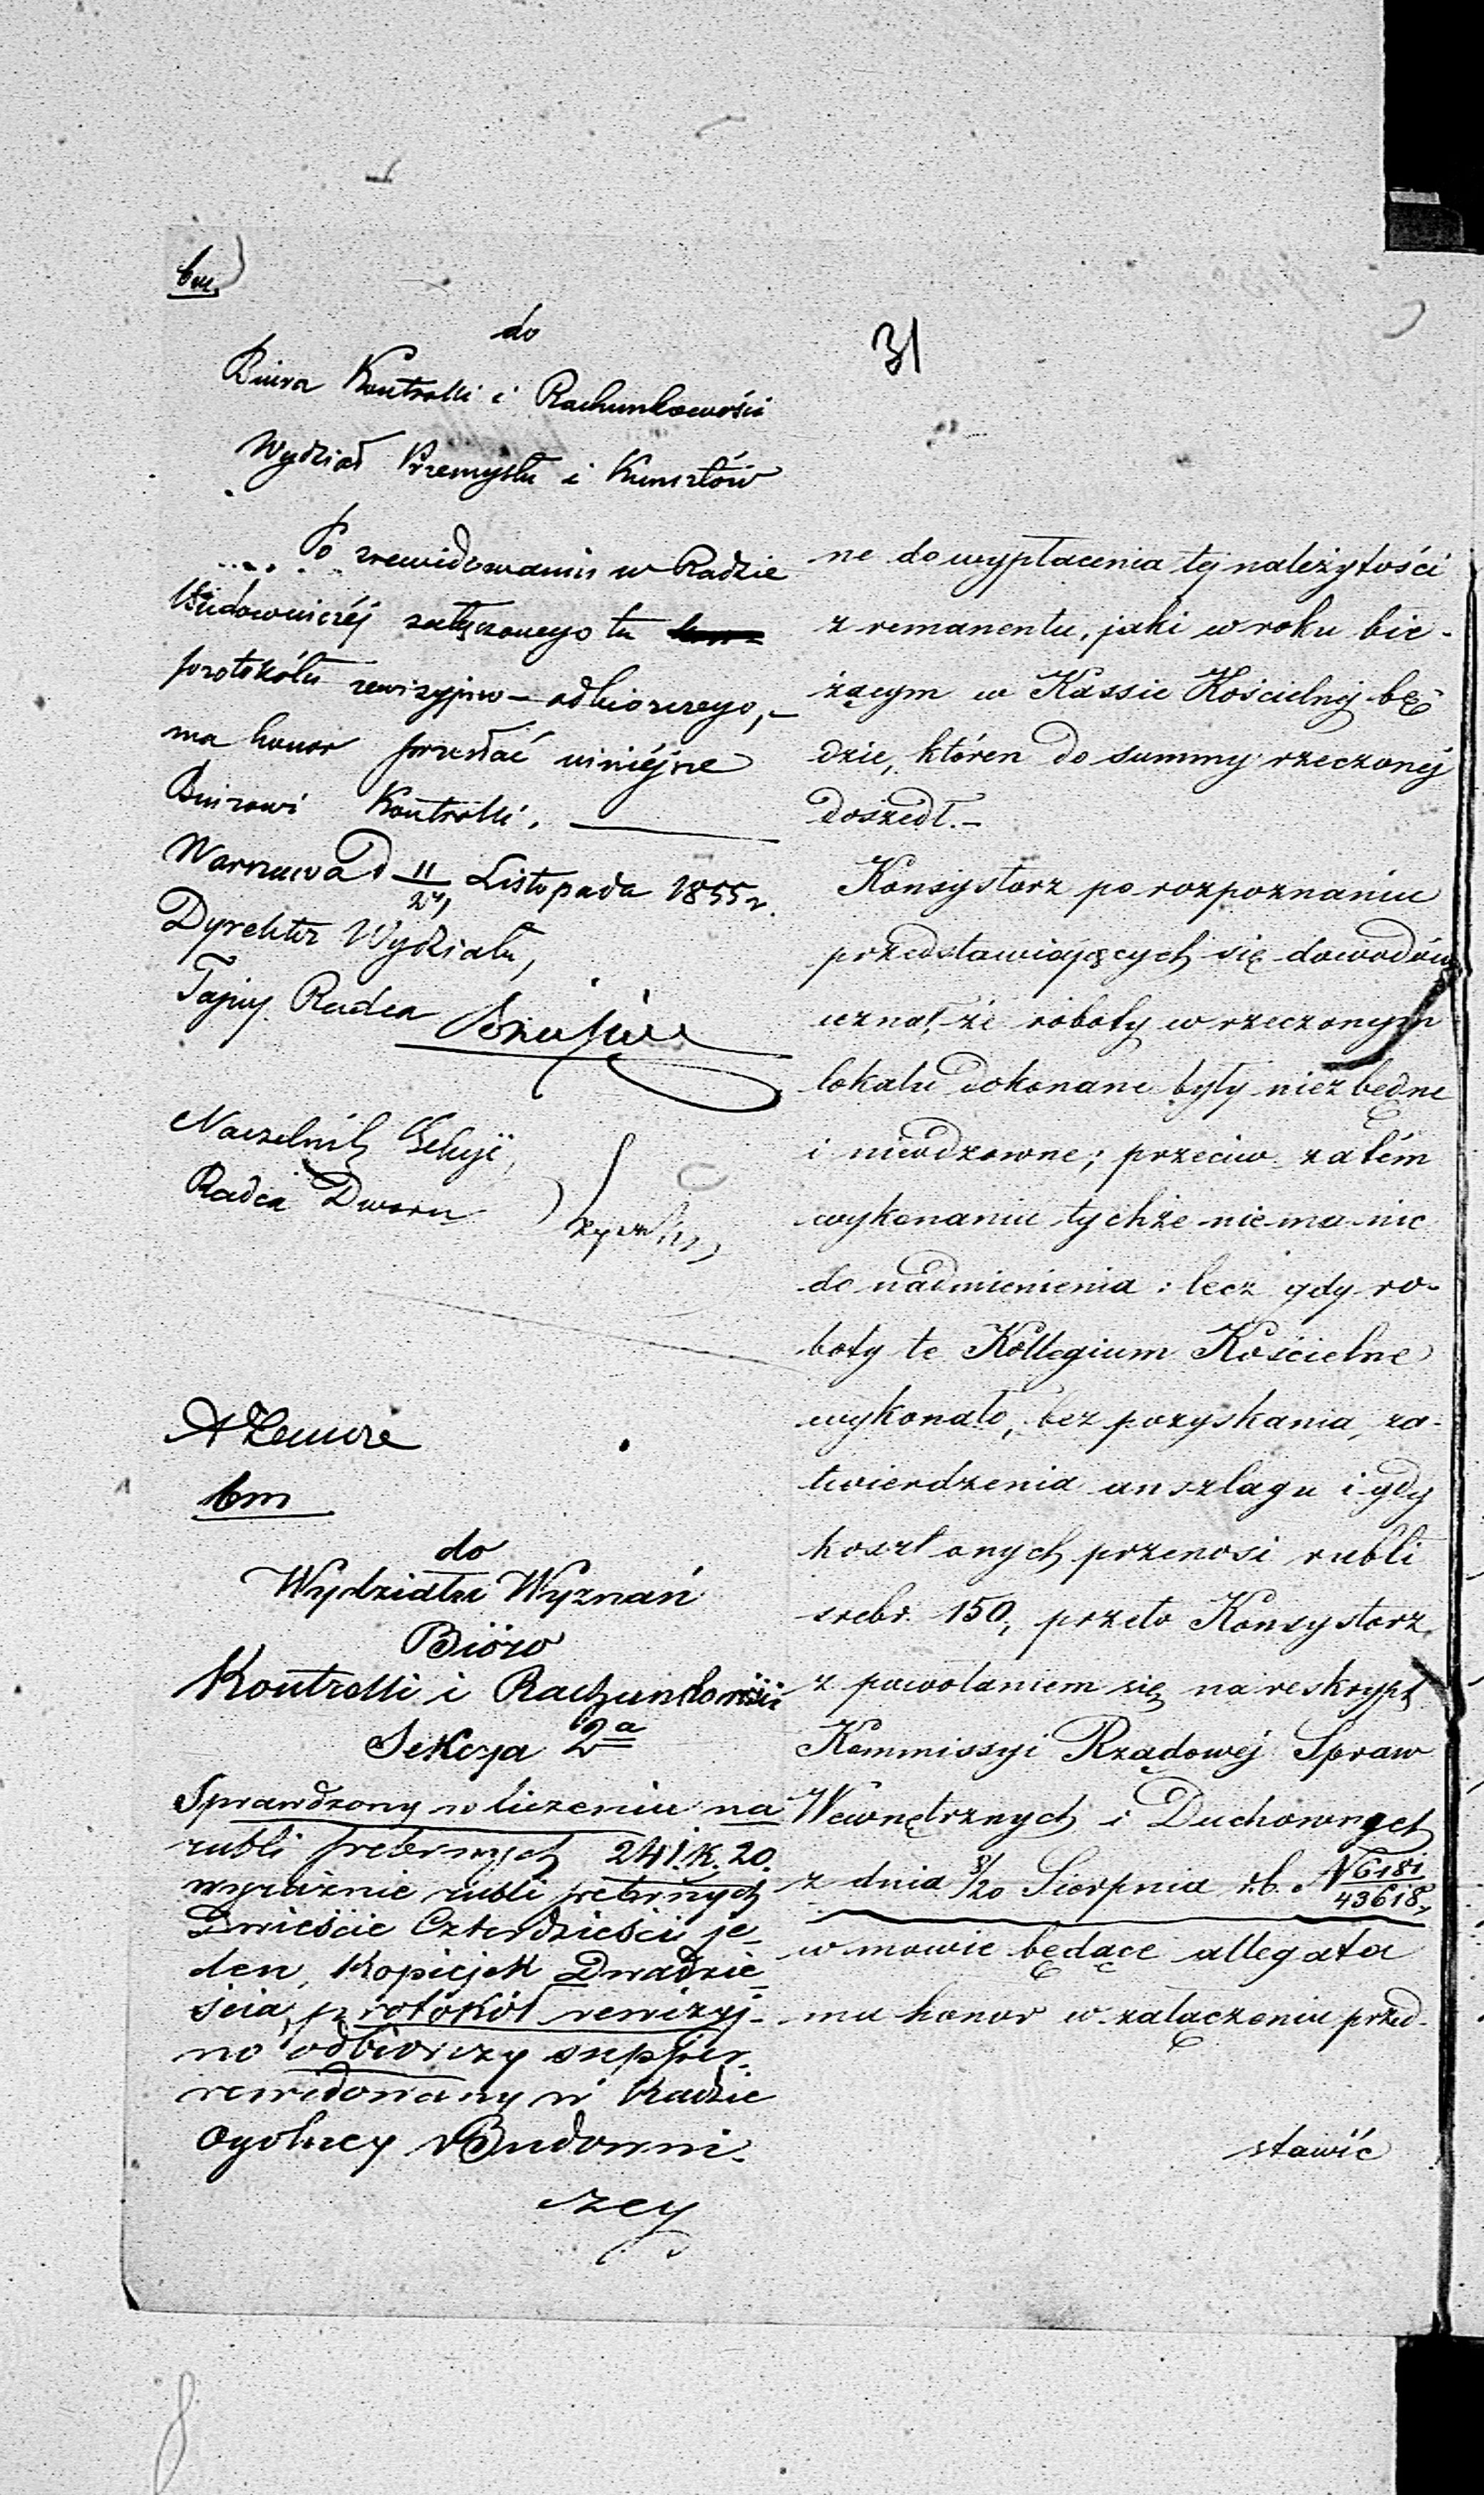 bm.
do
Biura Kontrolli i Rachunkowości
Wydział Przemysłu i Kunsztów
Po zrewidowaniu w Radzie
Budowniczéj załączonego tu
protokółu rewizyjno-odbiorczego,
ma honor przesłać niniéjsze
Biurowi Kontrolli.
Warszawa d 11/23 Listopada 1855 r.
Dyrektor Wydziału,
Tajny Radca
Naczelnik Sekcji,
Radca Dworu
bm
do
Wydziału Wyznań
Bióro
Kontrolli i Rachunkowości
Sekcya 2a
Sprawdzony w liczeniu na
rubli srebrnych 241. k. 20.
wyraźnie rubli srebrnych
Dwieście Czterdzieści je-
den, Kopiejek Dwadzie-
ścia, protokół rewizyj-
no odbiorczy supper-
rewidowany w Radzie
Ogolney Budowni-
czey
31
ne do wypłacenia tej należytości
z remanentu, jaki w roku bie-
żącym w Kassie Kościelnej bę-
dzie, któren do summy rzeczonej
doszedł.-
Konsystorz po rozpoznaniu
przedstawiających się dowodów
uznał, że roboty w rzeczonym
lokalu dokonane były niezbędne
i nieodzowne; przeciw zatém
wykonaniu tychże nie ma nic
do nadmienienia: lecz gdy ro-
boty te Kollegium Kościelne
wykonało, bez pozyskania, za-
twierdzenia anszlagu i gdy
koszt onych przenosi rubli
srebr. 150, przeto Konsystorz,
z powołaniem się na reskrypt
Kommissyi Rządowéj Spraw
Wewnętrznych i Duchownych
z dnia 8/20 Sierpnia r.b. N 6181/43618,
w mowie będące allegata
ma honor w załączeniu przed-
stawić